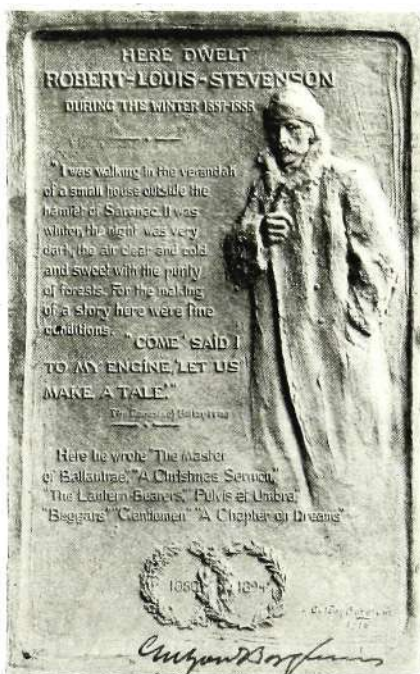 HERE DWELT
ROBERT-LOUIS-STEVENSON
DURING THE WINTER 1887-1888
"I was walking in the verandah
of a small house outside the
hamlet of Saranac. It was
winter, the night was very
dark, the air clear and cold
and sweet with the purity
of forests. For the making
of a story here were fine
conditions.
"COME' SAID I
TO MY ENGINE, 'LET US
MAKE A TALE.'"
Here he wrote "The Master
of Ballantrae," "A Christmas Sermon,"
"The Lantern Bearers," "Pulvis et Umbra,"
"Beggars" "Gentlemen" "A Chapter on Dreams"
1850 1894
Gutzon Borglum